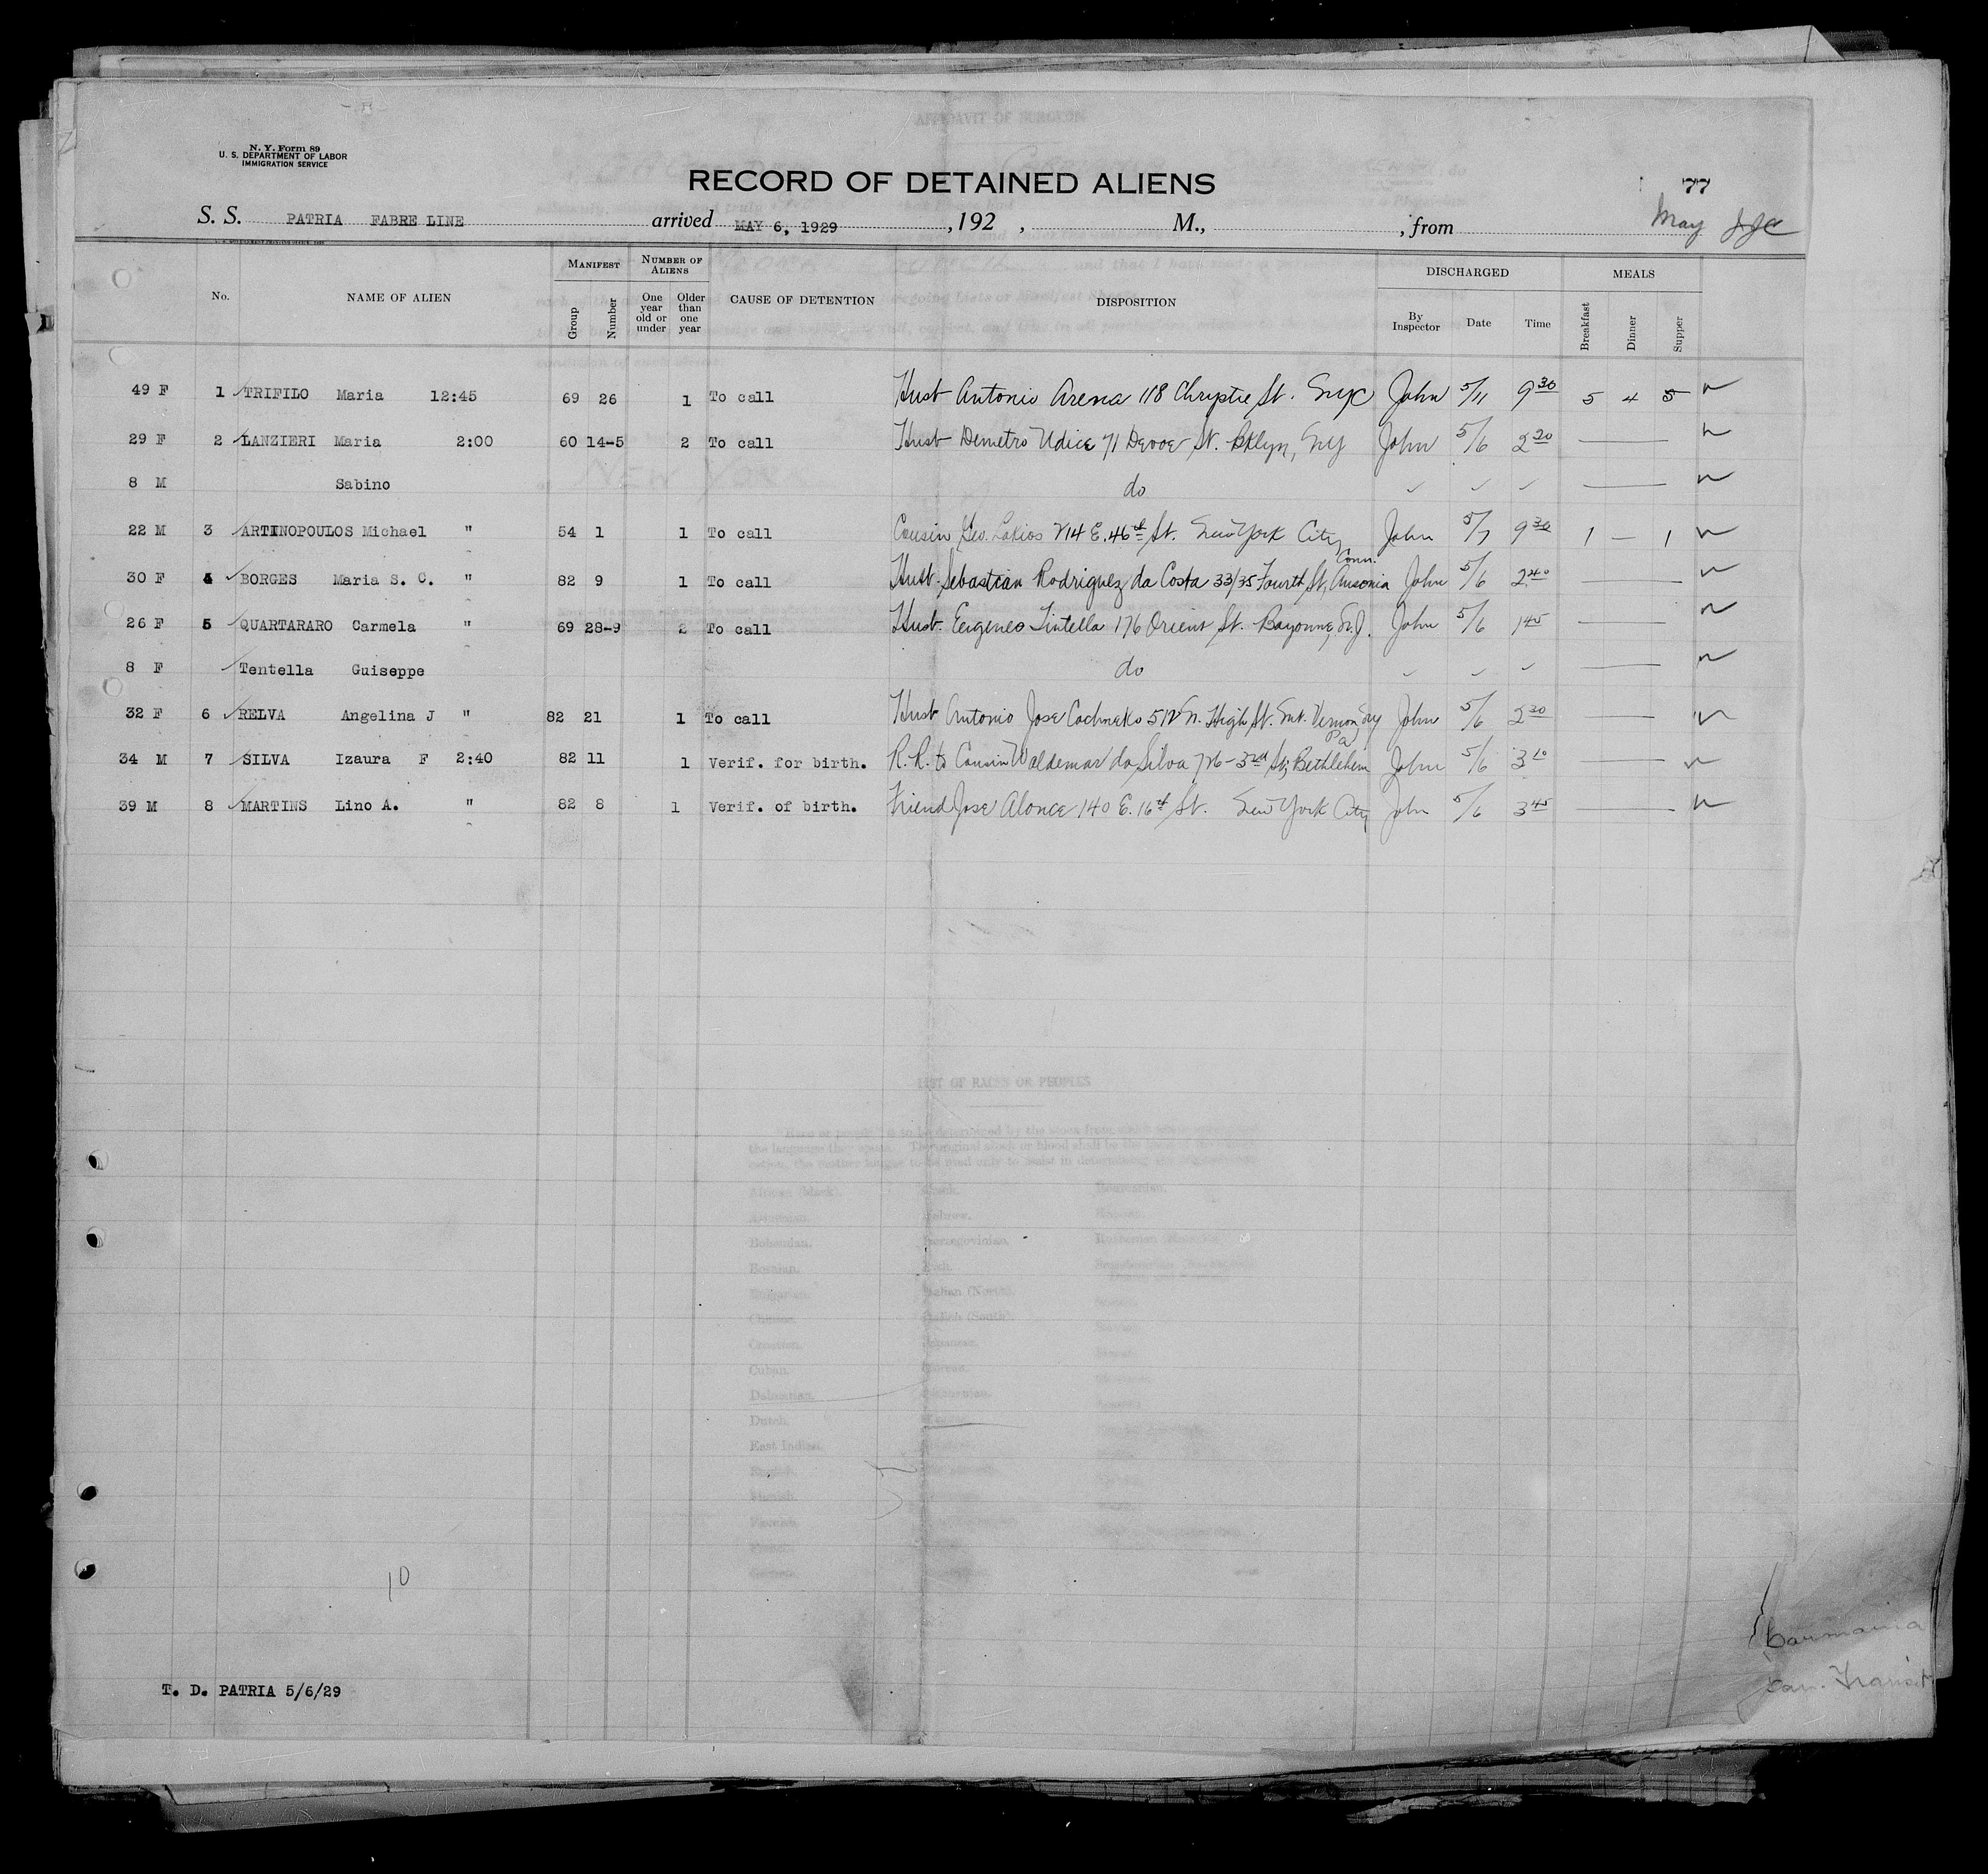 N. Y. Form 89
U. S. DEPARTMENT OF LABOR
IMMIGRATION SERVICE
RECORD OF DETAINED ALIENS
77
S. S. PATRIA FABRE LINE arrived MAY 6, 1929 , 192 , M., , from May
No. NAME OF ALIEN MANIFEST Group Number NUMBER OF ALIENS One year old or under Older than one year CAUSE OF DETENTION DISPOSITION DISCHARGED By Inspector Date Time MEALS Breakfast Dinner Supper
49 F 1 TRIFILO Maria 12:45 69 26 1 To call Hust Antonio Arena 118 Chryptie St. NYC John 5/11 9 30 5 4 5
29 F 2 LANZIERI Maria 2:00 60 14-5 2 To call Hust Demetro Udice 71 Devoe St. Bklyn, NY John 5/6 2 20
8 M Sabino do
22 M 3 ARTINOPOULOS Michael " 54 1 1 To call Cousin Geo. 214 E. 46th St. New York City John 5/7 9 30 1 — 1
30 F 4 BORGES Maria S. C. " 82 9 1 To call Hust. Sebastian Rodriguez da Costa 33/35 Fourth St, Ansonia Conn. John 5/6 2 40
26 F 5 QUARTARARO Carmela " 69 28-9 2 To call Hust. Eugeneo Tintella 176 Orient St. Bayonne, N.J. John 5/6 1 45
8 F Tentella Guiseppe do
32 F 6 RELVA Angelina J " 82 21 1 To call Hust Antonio Jose 512 N. High St. Mt. Vernon, NY John 5/6 2 30
34 M 7 SILVA Izaura F 2:40 82 11 1 Verif. for birth. R.R. to Cousin Waldemar da Silva 726-3rd St, Bethlehem Pa John 5/6 3 10
39 M 8 MARTINS Lino A. " 82 8 1 Verif. of birth. Friend Jose Alonce 140 E. 16th St. New York City John 5/6 3 45
LIST OF RACES OR PEOPLES
10
Carmania
T. D. PATRIA 5/6/29